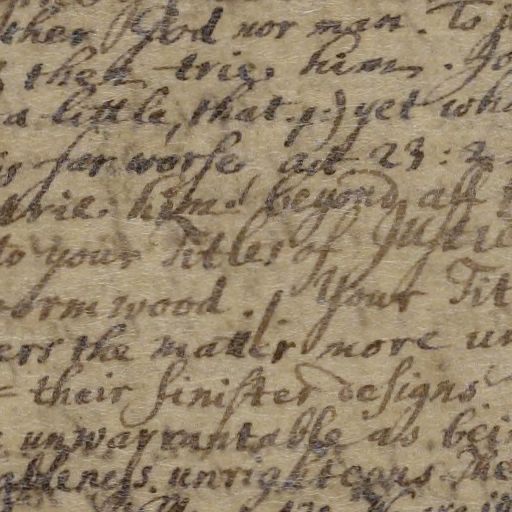 ther God nor man. To
then trie him. Jo
a little, that .p.) yet wh
is far worse, act 23: 2
trie him! beyond all
to your Titles of Justice
wormwood. / Your Tit
ers the matter more un
= their sinister designs
unwarrantable as bei
ableness. unrighteous